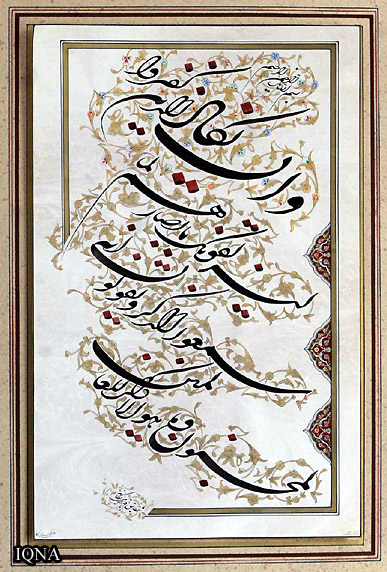 بسم الله الرحمن الرحیم
وان یکاد الذین کفروا
لیزلقونک بابصارهم لما
سمعوا الذکر ویقولون انه
لمجنون وما هو الا ذکر للعالمین
IQNA